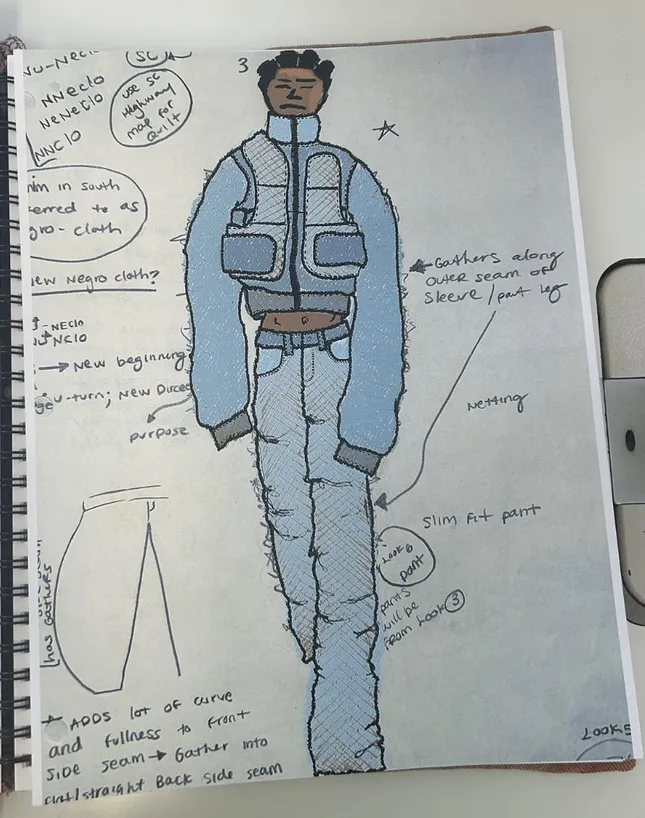 SC
NNeclo
NeNeclo
NNClo
use SC
Highway
map for
Quilt
3
in south
to as
cloth
Negro cloth?
New beginning
U-turn; New
purpose
Gathers along
outer seam of
sleeve/pant leg
Netting
Slim Fit pant
Look 6
pant
pants
will be
From Look 3
has Gathers
ADDS lot of curve
and fullness to Front
side seam → Gather into
straight Back side seam
Look 5